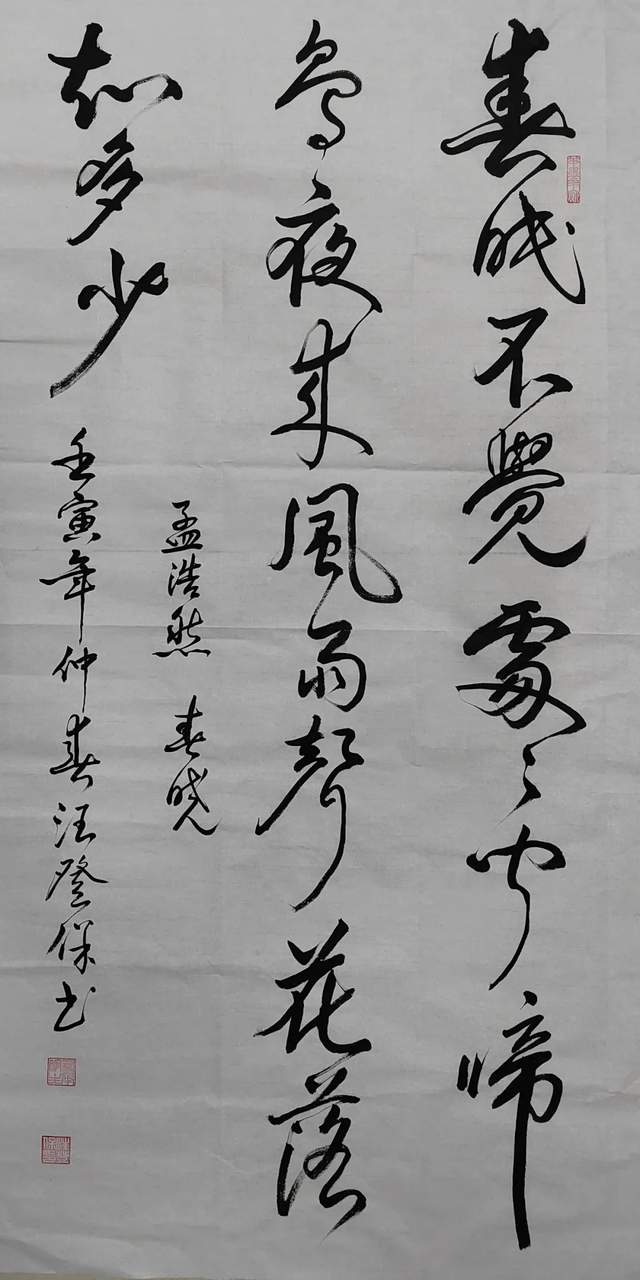 春眠不覺處々聞啼
鳥夜来風雨聲花落
知多少
孟浩然 春晓
壬寅年仲春汪登保书